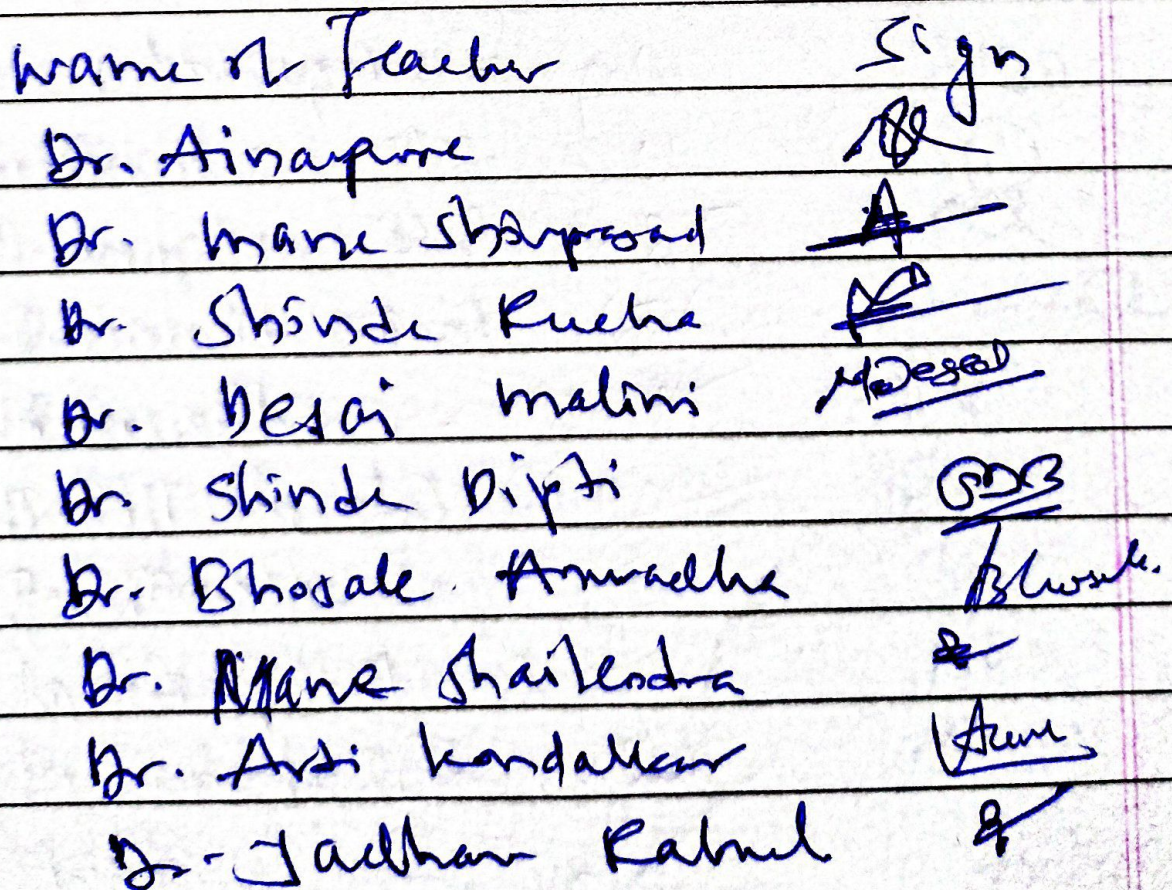 Name of Teacher Sign
Dr. Ainapure
Dr. Mane Shivprasad
Dr. Shinde Rucha
Dr. Desai Malini MDesai
Dr. Shinde Dipti
Dr. Bhosale Anuradha Bhosale.
Dr. Mane Shailendra
Dr. Arti Kondalkar
Dr. Jadhav Rahul